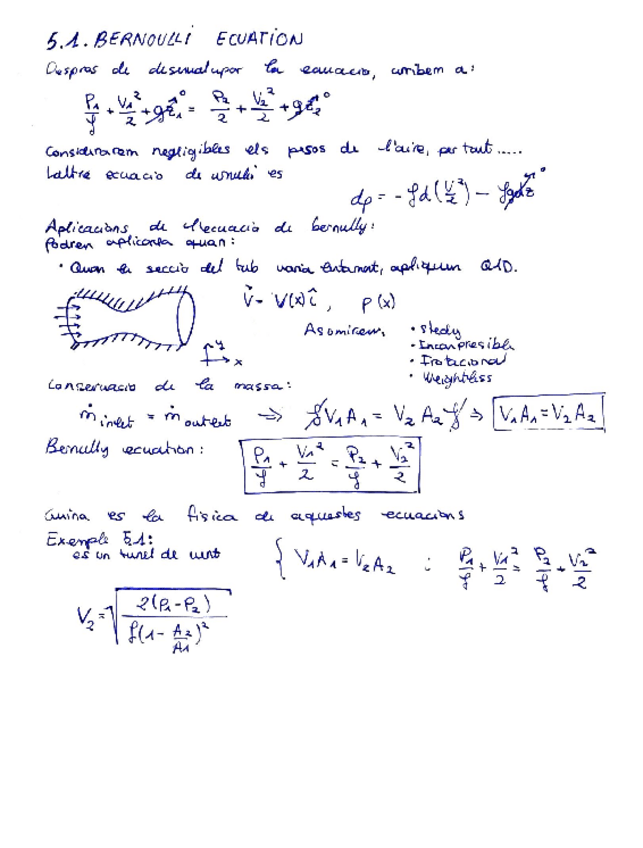 5.1. BERNOULLI ECUATION
Despres de desenvolupar la equacio, arribem a:
P₁/ρ + V₁²/2 + gz₁→0 = P₂/2 + V₂²/2 + gz₂→0
Considerarem negligibles els pesos de l'aire, per tant .....
L'altre ecuacio de is
dp = - ρd(V²/2) - ρgdz→0
Aplicacions de l'ecuacio de bernully:
Podrem aplicarla quan:
• Quan la seccio del tub varia lentament, apliquem Q1D.
V⃗ = V(x) î , P(x)
Asomirem,
• Stedy
• Incompresible
• Irotacional
• Weightless
y
x
Conservacio de la massa:
ṁ inlet = ṁ outlet => ρV₁A₁ = V₂A₂ρ => V₁A₁ = V₂A₂
Bernully ecuation: P₁/ρ + V₁²/2 = P₂/ρ + V₂²/2
Cuina es la fisica de aquestes ecuacions
Exemple 5.1:
es un tunel de vent
{ V₁A₁ = V₂A₂ ; P₁/ρ + V₁²/2 = P₂/ρ + V₂²/2
V₂ = √(2(P₁-P₂) / ρ(1 - A₂/A₁)²)